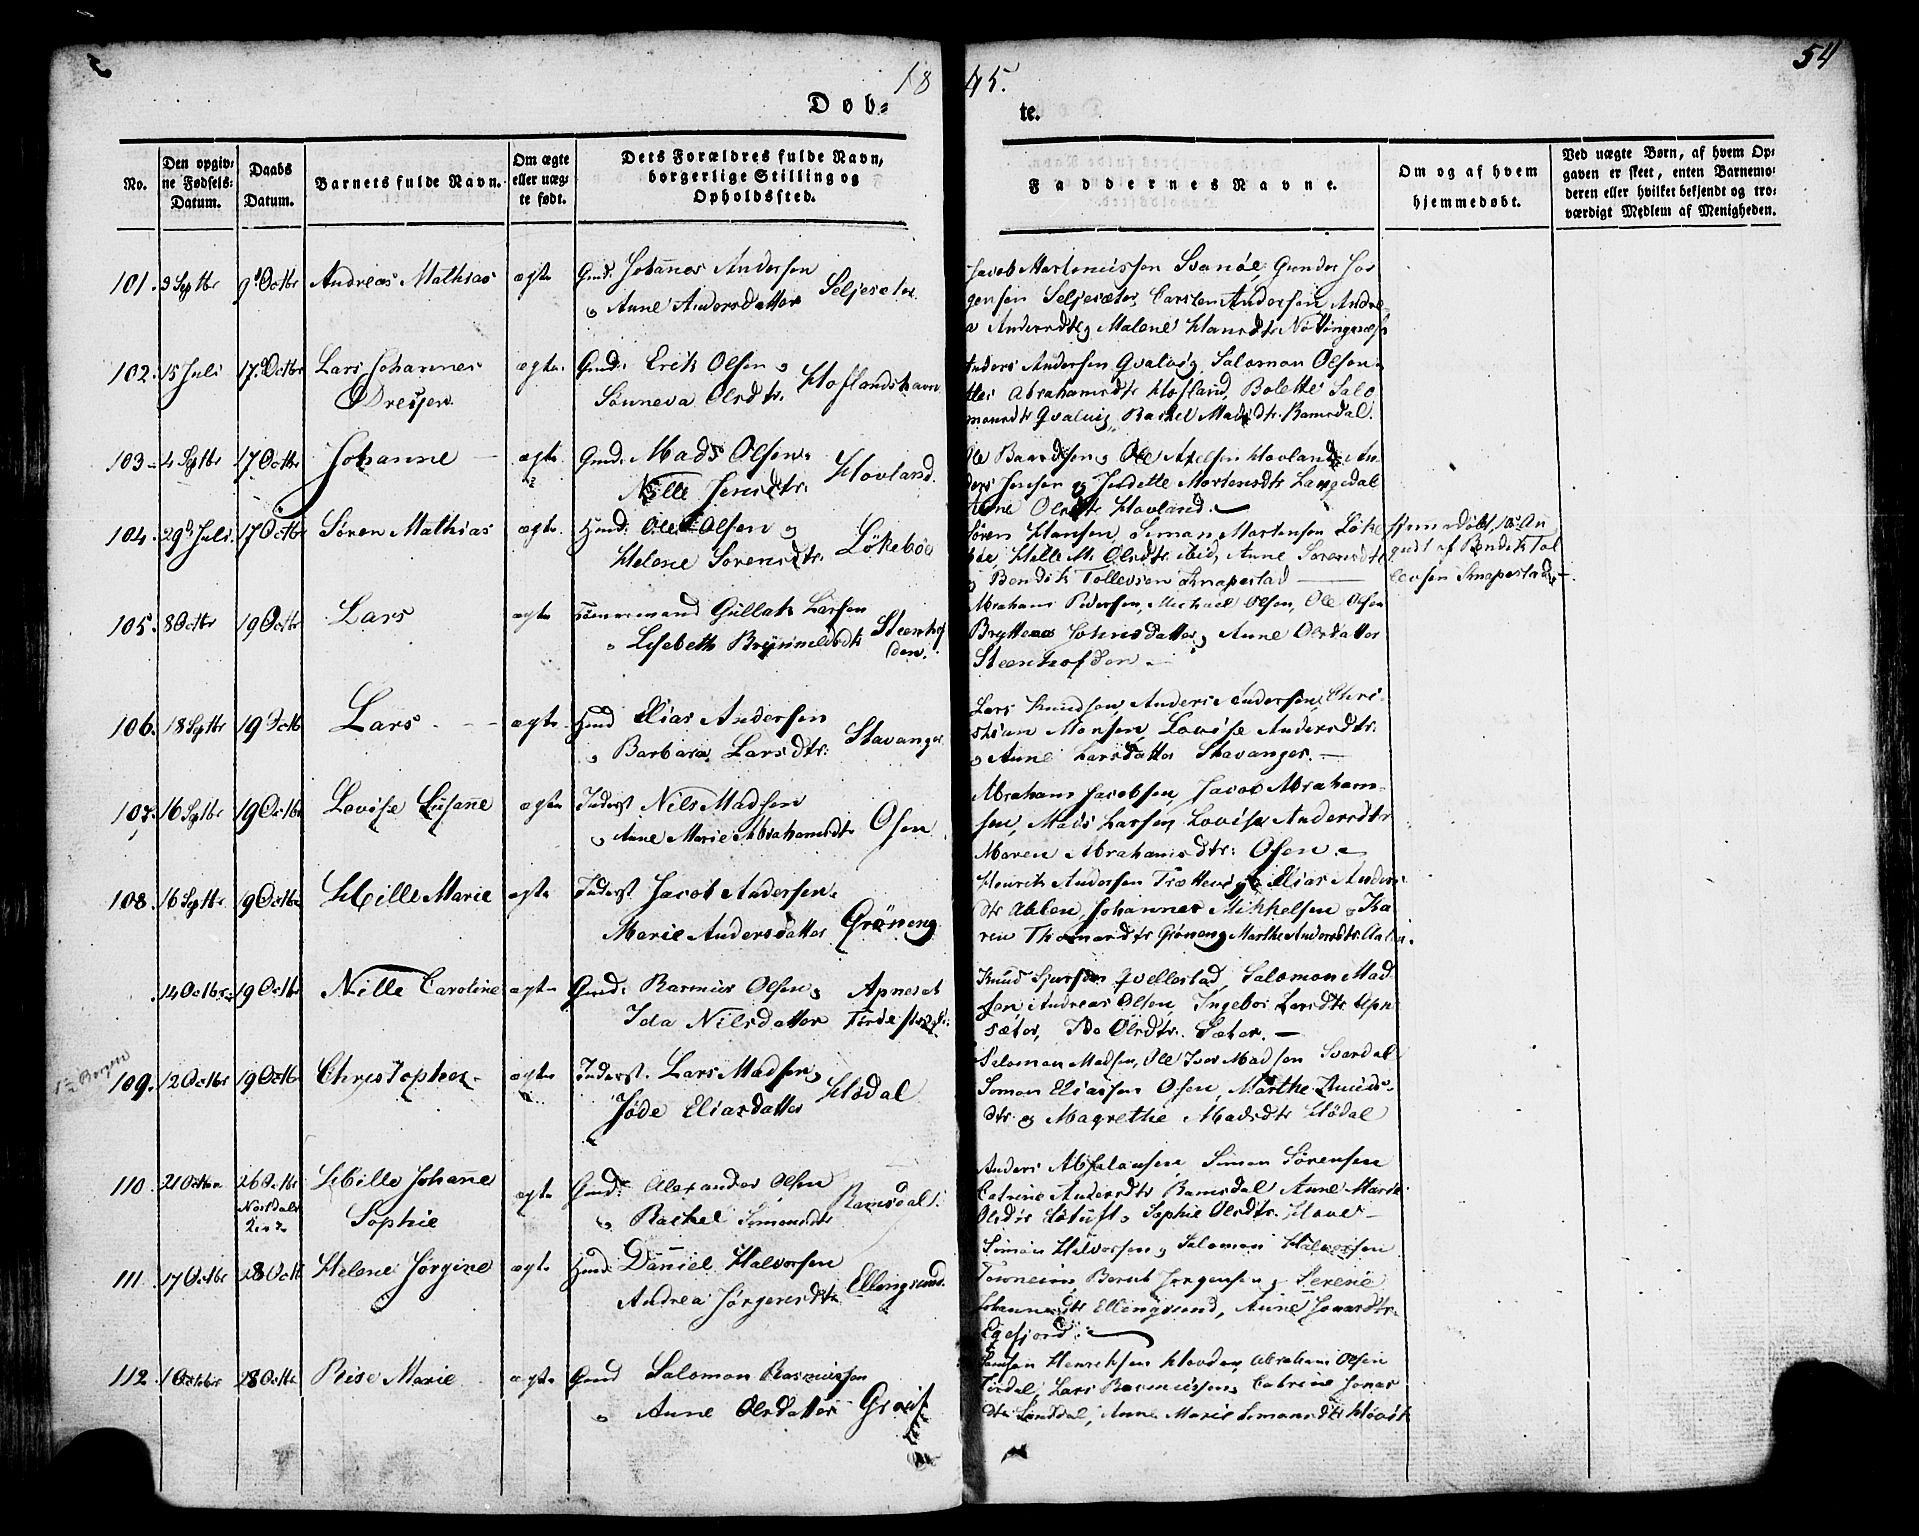 18 45.
54
Døb= te.
No.
Den opgiv=
ne Fødsels=
Datum.
Daabs
Datum.
Barnets fulde Navn.
Om ægte
eller uæg=
te født.
Dets Forældres fulde Navn,
borgerlige Stilling og
Opholdssted.
Faddernes Navne.
Om og af hvem
hjemmedøbt.
Ved uægte Børn, af hvem Op=
gaven er skeet, enten Barnemo=
deren eller hvilket bekjendt og tro=
værdigt Medlem af Menigheden.
101. 9 Septbr 9 Octbr Andreas Mathias ægte Gmd. Johannes Andersen
& Anne Andersdatter Seljesæter
Jacob Martinussen Svanöe, Gunder Jör
gensen Seljesæter, Carsten Andersen, Andre
a Andersdtr, Malene Hansdtr
102. 15 Juli 17 Octbr Lars Johannes ægte Gmd. Erik Olsen &
Dreyer Sönneva Olsdtr. Hoflandshavn
Anders Andersen Qvalvig, Salomon Olsen
Abrahamsdtr Hofland, Bolette Salo
monsdtr Qvalvig, Rachel Madsdtr Ramsdal.
103 4 Septbr 17 Octbr Johanne ægte Gmd. Mads Olsen
Nille Jensdtr. Hovland.
Ole Olsen Hovland, An
ders Jensen & Mortensdtr Langedal
Anne Olsdtr Hovland.
104. 29 Juli 17 Octbr Sören Mathias ægte Hmd. Ole Olsen &
Helene Sörensdtr. Lökeböe
Sören Hansen, Simon Martensen Löke
böe, Helle M. Olsdtr ibid, Anne Sörensdtr
& Bendik Tollevsen Knapestad
Hjemmedöbt 10 Au
gust af Bendik Tol
levsen Knapestad
105. 8 Octbr 19 Octbr Lars ægte Tömmermand Gullak Larsen
Lisebeth Brynnildsdtr Steenhof
den.
Abraham Pedersen, Michael Olsen, Ole Olsen
Johnsdatter, Anne Olsdatter
Steenhofden
106. 18 Septbr 19 Octb Lars ægte Hmd Elias Andersen
& Barbara Larsdtr. Stavanger
Lars Knudsen, Anders Andersen, Chri
stian Monsen, Lovise Andersdtr.
& Anne Larsdatter Stavanger.
107. 16 Septbr 19 Octbr Lovise Susanne ægte Inderst Nils Madsen
& Anne Marie Abrahamsdtr Osen
Abraham Jacobsen, Jacob Abraham=
sen, Mads Larsen, Lovise Andersdtr
Maren Abrahamsdtr: Osen.
108. 16 Septbr 19 Octbr Hille Marie ægte Inderst Jacob Andersen
Marie Andersdatter Gröneng
Henrik Andersen Trættevig, Elias Anders
Johannes Mikkelsen & Ka
ren Thomasdtr Gröneng, Marthe Andersdtr
14 Octbr 19 Octbr Nille Caroline ægte Gmd: Rasmus Olsen,
Ida Nilsdatter Apneset
Knud Sjursen Qvellestad, Salomon Mad
sen, Andreas Olsen, Ingebor Larsdtr Apn
sæter, Ida Olsdtr. Sæter.
Bergen
109. 12 Octbr 19 Octbr Christopher ægte Inderst. Lars Madsen,
Jöde Eliasdatter Hödal
Salomon Madsen, Ole Iver Madsen Svardal
Simon Eliassen Osen, Marthe Knuds=
dtr & Magrethe Madsdtr Hödal
110. 21 October 26 Octbr Hille Johanne ægte Gmd: Alexander Olsen
Sophie & Rachel Simonsdtr Ramsdal
Anders Absalonsen, Simon Sörensen
Catrine Andersdtr Ramsdal, Anne Marie
Olsdtr, Sophie Olsdtr.
111. 17 Octbr 28 Oct Helene Jörgine ægte Hmd. Daniel Halvorsen
Andrea Jörgensdtr Ellingsund.
Simon Halvorsen, Salomon Halvorsen
Bernt Jörgensen, Serene
Johannesdtr Ellingsund, Anne Jonasdtr
Egefjord.
112. 1 October 28 Octbr Rise Marie ægte Gmd Salomon Rasmussen
& Anne Olsdatter
Henriksen Hovden, Abraham Olsen
Lars Rasmussen, Catrine Jonas
dtr, Anne Marie Simonsdtr